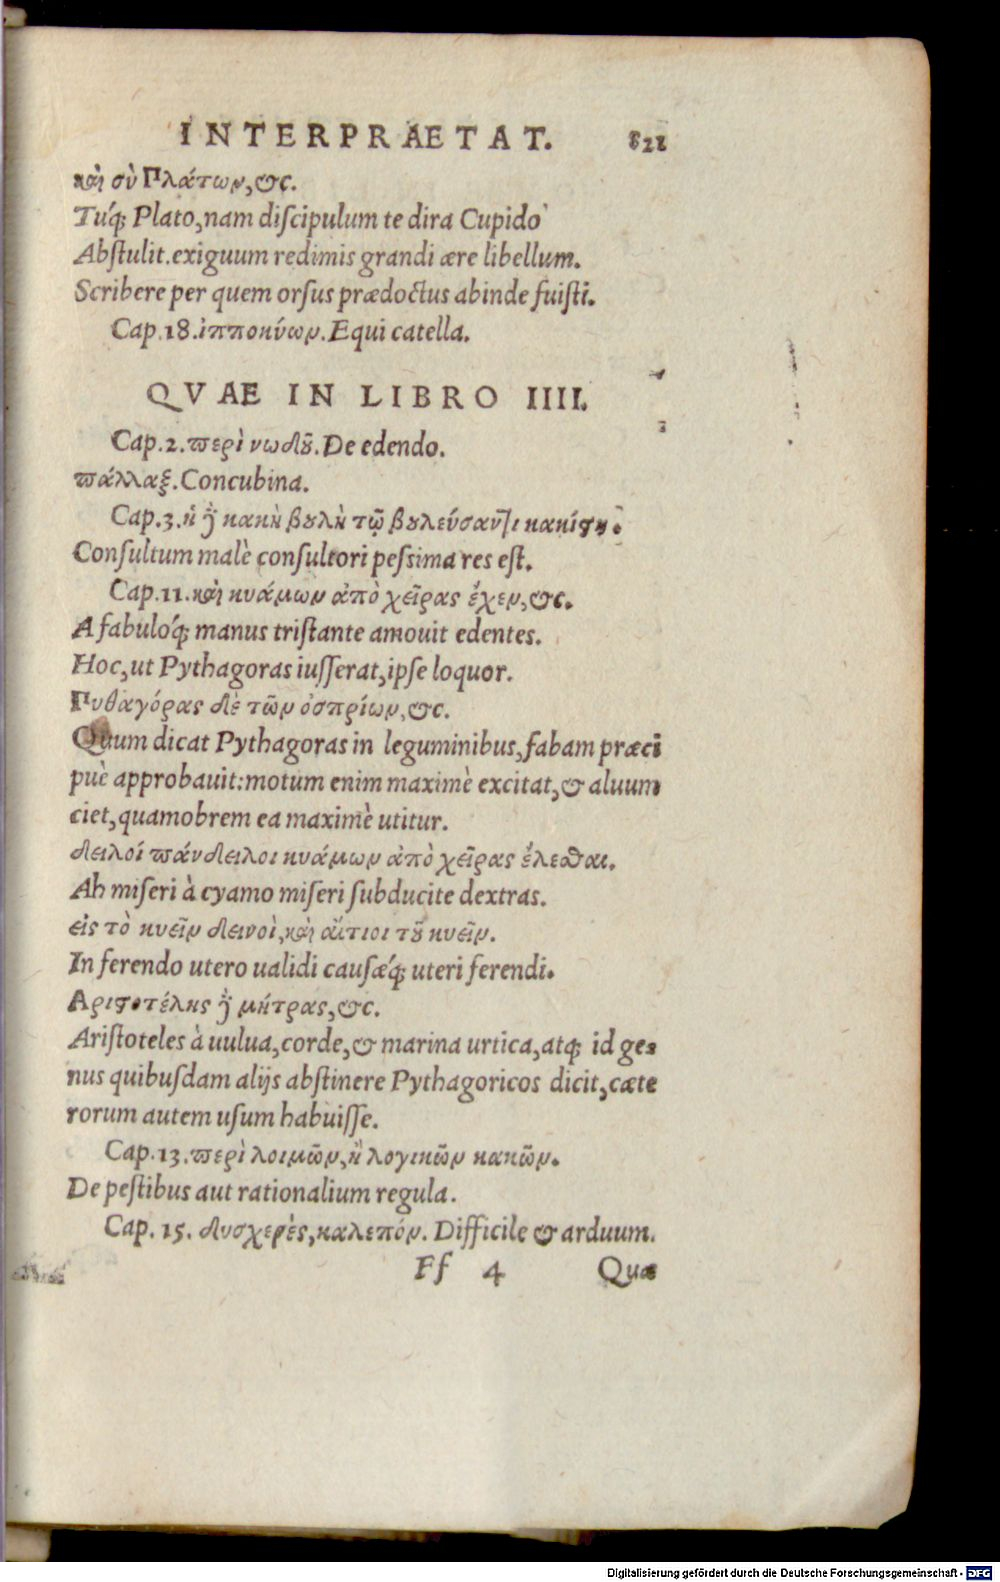 INTERPRAETAT. 821
καὶ σὺ Πλάτων, &c.
Túq́; Plato, nam diſcipulum te dira Cupido
Abſtulit. exiguum redimis grandi ære libellum.
Scribere per quem orſus prædoctus abinde fuiſti.
Cap. 18. ἱπποκύων. Equi catella.
QVAE IN LIBRO IIII.
Cap. 2. περὶ νωδοῦ. De edendo.
πάλλαξ. Concubina.
Cap. 3. ἡ δὲ κακὴ βουλὴ τῷ βουλεύσαντι κακίστη.
Conſultum malè conſultori peſſima res eſt.
Cap. 11. καὶ κυάμων ἀπὸ χεῖρας ἔχεν, &c.
A fabulóq́; manus triſtante amouit edentes.
Hoc, ut Pythagoras iuſſerat, ipſe loquor.
Πυθαγόρας δὲ τῶν ὀσπρίων, &c.
Quum dicat Pythagoras in leguminibus, fabam præci
puè approbauit: motum enim maximè excitat, & aluum
ciet, quamobrem ea maximè utitur.
δειλοί πάνδειλοι κυάμων ἀπὸ χεῖρας ἕλεσθαι.
Ah miſeri à cyamo miſeri ſubducite dextras.
εἰς τὸ κυεῖν δεινοὶ, καὶ αἴτιοι τοῦ κυεῖν.
In ferendo utero ualidi cauſæq́; uteri ferendi.
Αριστοτέλης δὲ μήτρας, &c.
Ariſtoteles à uulua, corde, & marina urtica, atq; id ge-
nus quibuſdam alijs abſtinere Pythagoricos dicit, cæte
rorum autem uſum habuiſſe.
Cap. 13. περὶ λοιμῶν, ἢ λογικῶν κακῶν.
De peſtibus aut rationalium regula.
Cap. 15. δυσχερὲς, καλεπόν. Difficile & arduum.
Ff 4 Quæ
Digitalisierung gefördert durch die Deutsche Forschungsgemeinschaft - DFG